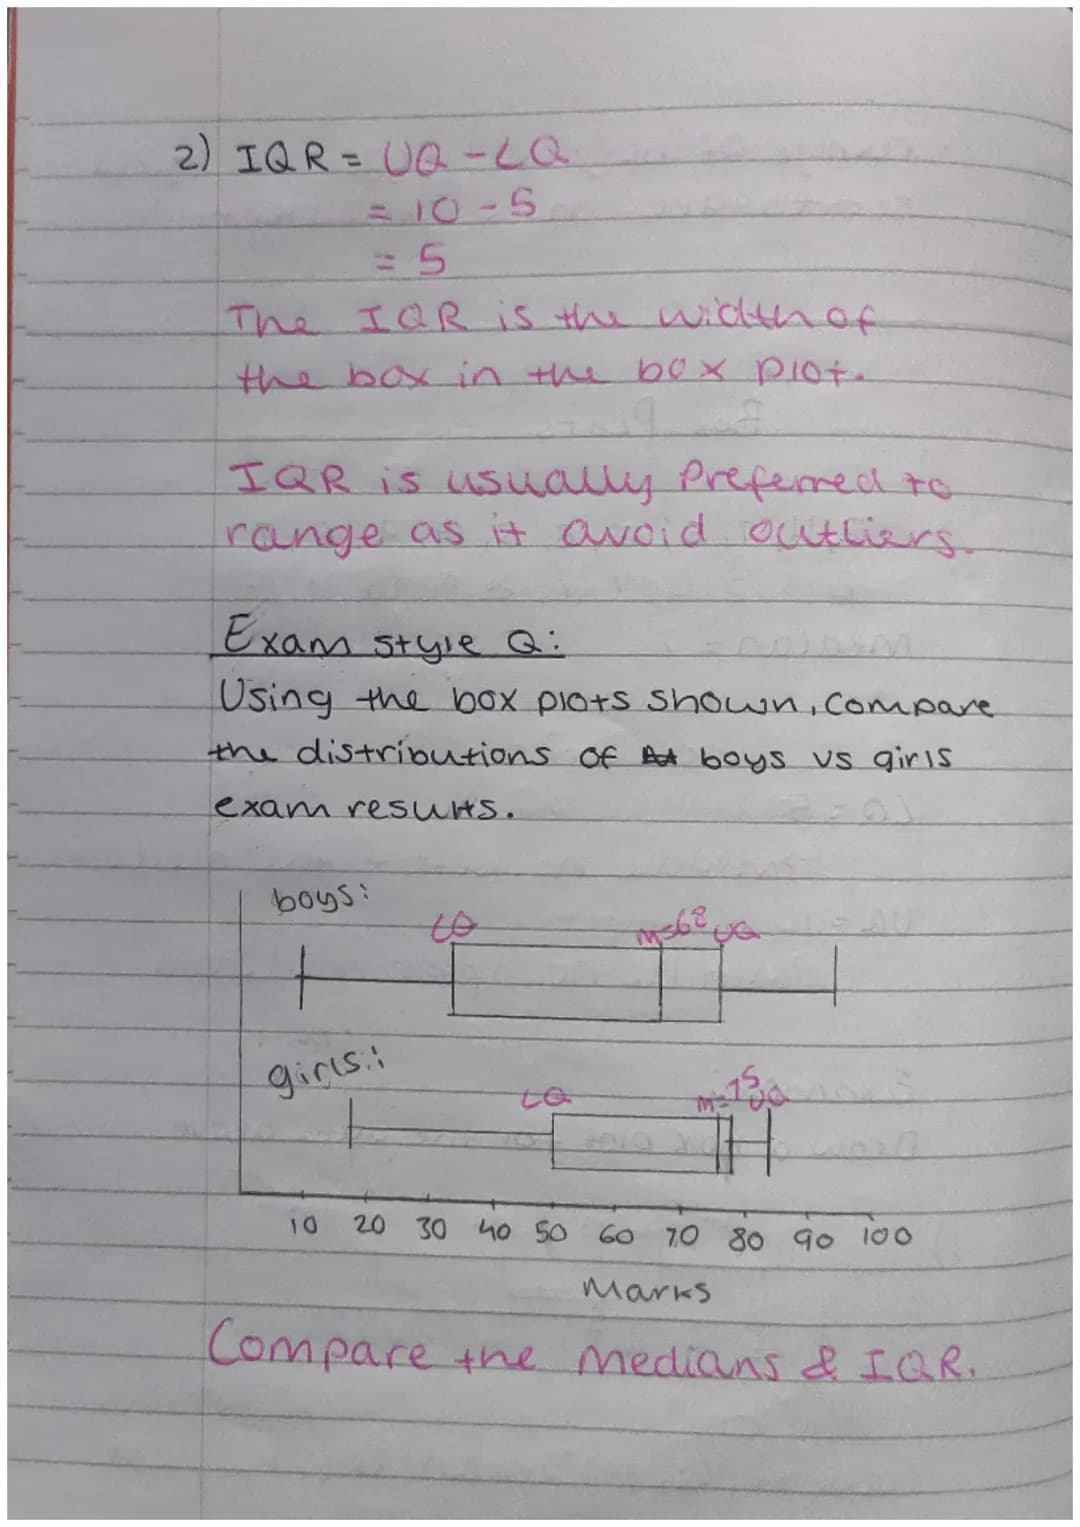 2) IQR = UQ - LQ
= 10 - 5
= 5
The IQR is the width of
the box in the box plot.
IQR is usually Preferred to
range as it avoid outliers.
Exam style Q:
Using the box plots shown, compare
the distributions of boys vs girls
exam results.
boys:
LQ m=68 UQ
girls:
LQ m=75 UQ
10 20 30 40 50 60 70 80 90 100
Marks
Compare the medians & IQR.